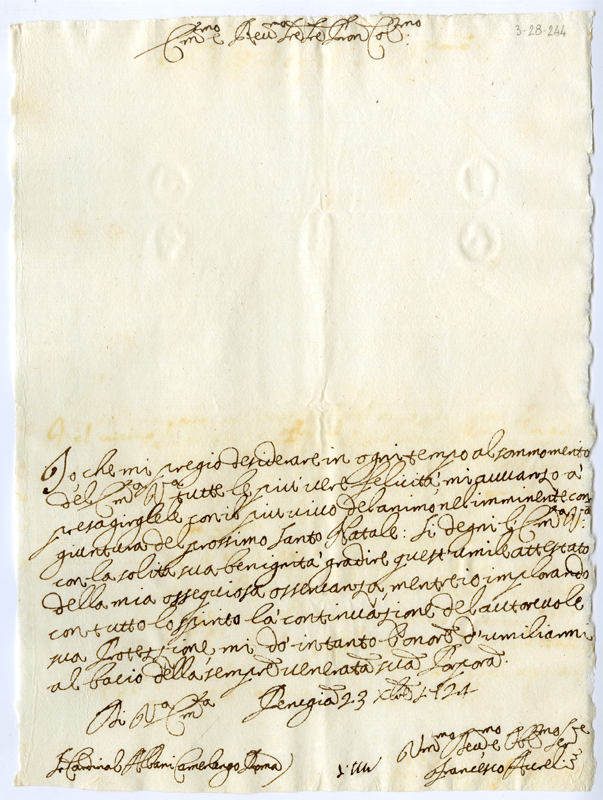 3-28-244
Em.mo e Reu.mo Sig.re Sig.re Pron Col.mo
Io che mi pregio desiderare in ogni tempo al sommo mento
dell'Em.za V.ra tutte le più vere felicità, mi auuanzo à
presagirgliele con il più viuo dell'animo nell'imminente con
giuntura del prossimo Santo Natale: Si degni l'Em.za V.ra
con la solita sua benignità gradire quest'umile attestato
della mia ossequiosa osseruanza, mentre io implorando
con tutto lo spirito la continuazione del autoreuole
sua Protezzione mi dò intanto l'onore d'umiliarmi
al bacio della sempre venerata sua Porpora.
Di V.ra Em.za Perugia 23 Xbre 1724
Um.mo Deu.mo Obb.mo Ser.re
Sr Cardinal Albani Camerlengo Roma)
Francesco